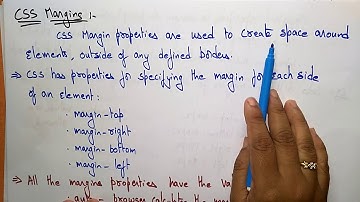 CSS Margins :-
CSS Margin properties are used to create space around
elements, outside of any defined borders.
⇒ CSS has properties for specifying the margin for each side
of an element :
· margin-top
· margin-right
· margin-bottom
· margin-left
⇒ All the margins properties have the
auto - browser calculates the